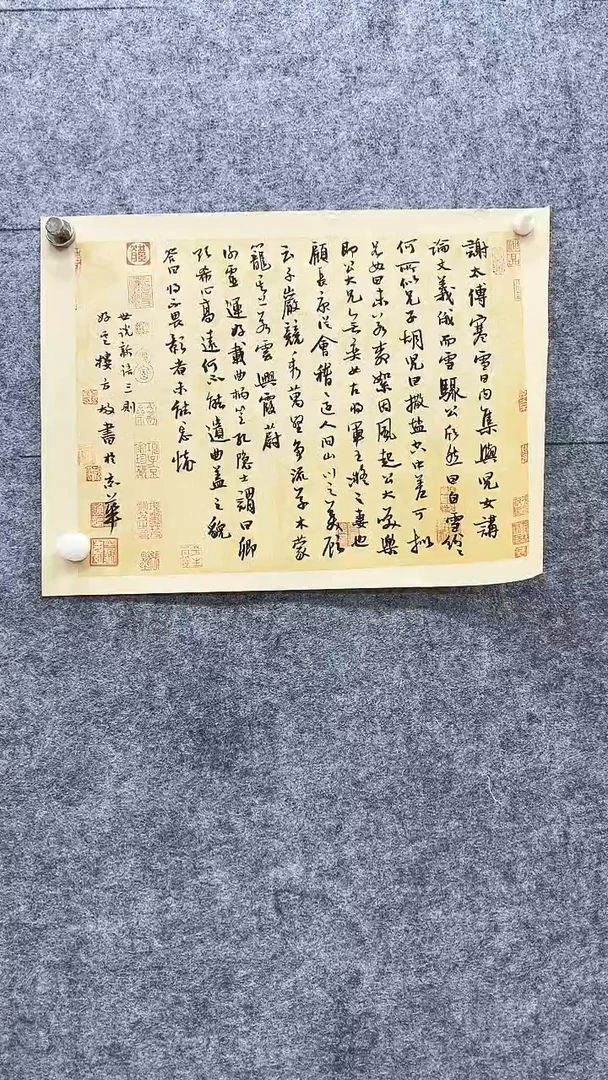 謝太傅寒雪日内集與兒女講
論文義俄而雪驟公欣然曰白雪紛
何所似兄子胡兒曰撒盐空中差可拟
兄女曰未若柳絮因風起公大笑樂
即公大兄無奕女左將軍王凝之妻也
顧長康從會稽還人问山川之美顧
云千巖競秀萬壑争流草木蒙
籠其上若雲興霞蔚
謝靈運好戴曲柄笠孔隐士謂曰卿
欲希心高遠何不能遺曲盖之貌
答曰将不畏影者未能忘懷
世说新语三則
好雲樓方放書於京華